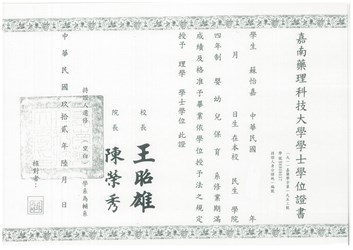 嘉南藥理科技大學學士學位證書
學生 蘇怡嘉 中華民國 年
月 日生在本校 民生 學院
四年制 嬰幼兒保育 系修業期滿
成績及格准予畢業依學位授予法之規定
授予 理學 學士學位 此證
校長 王昭雄
院長 陳榮秀
中華民國玖拾貳年陸月 日
核對者：